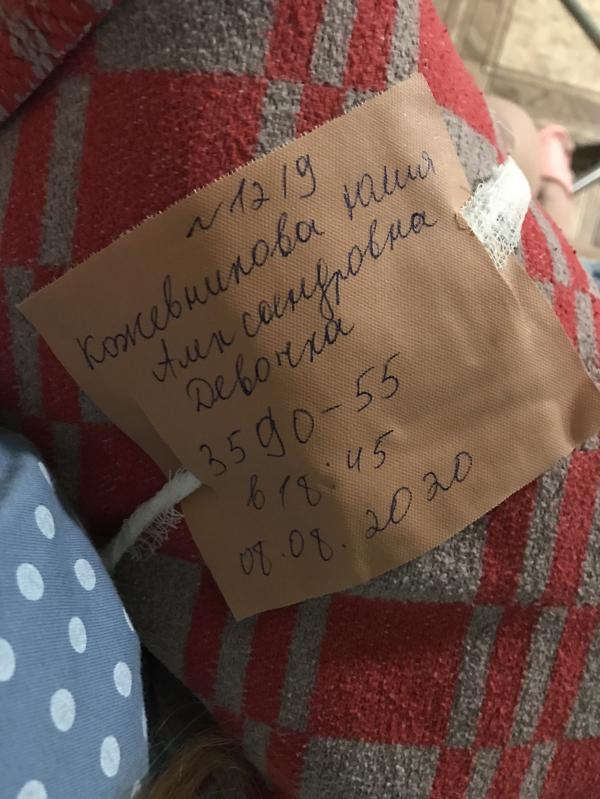 № 1219
Кожевникова Юлия
Александровна
Девочка
3590-55
в 18.45
08.08.2020